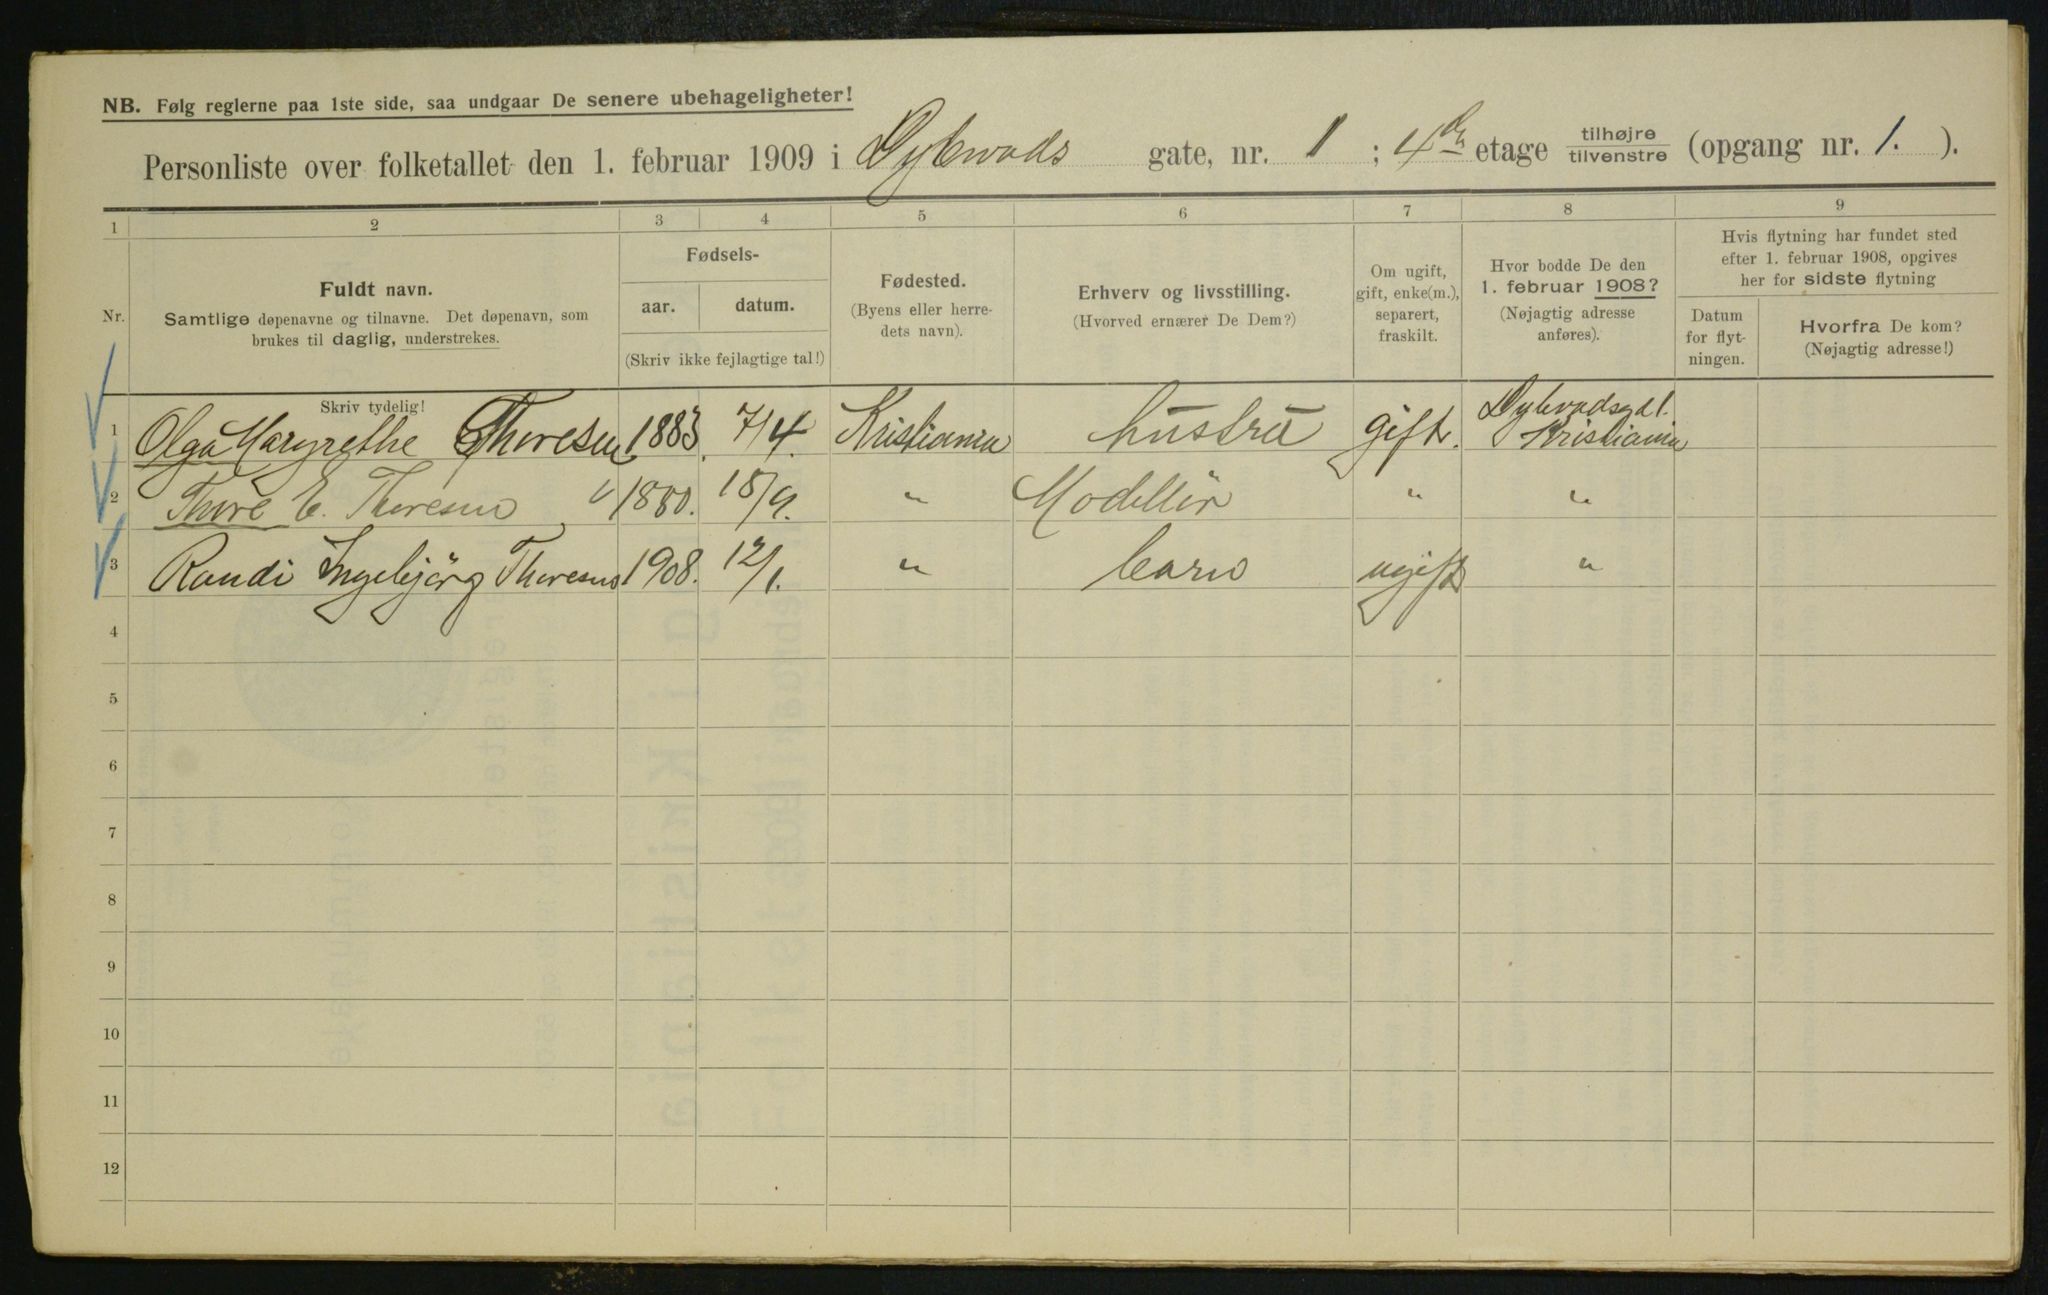 NB. Følg reglerne paa 1ste side, saa undgaar De senere ubehageligheter!
Personliste over folketallet den 1. februar 1909 i Dybwads gate, nr. 1 ; 4de etage tilhøjre / tilvenstre (opgang nr. 1. ).
1 2 3 4 5 6 7 8 9
Nr.
Fuldt navn.
Samtlige døpenavne og tilnavne. Det døpenavn, som
brukes til daglig, understrekes.
Skriv tydelig!
Fødsels-
aar. datum.
(Skriv ikke fejlagtige tal!)
Fødested.
(Byens eller herre-
dets navn).
Erhverv og livsstilling.
(Hvorved ernærer De Dem?)
Om ugift,
gift, enke(m.),
separert,
fraskilt.
Hvor bodde De den
1. februar 1908?
(Nøjagtig adresse
anføres).
Hvis flytning har fundet sted
efter 1. februar 1908, opgives
her for sidste flytning
Datum
for flyt-
ningen.
Hvorfra De kom?
(Nøjagtig adresse!)
1 Olga Margrethe Thoresen 1883. 7/4. Kristiania hustru gift. Dybvadsgd 1. Kristiania
2 Thore E. Thoresen " 1880. 18/9. " Modellör " "
3 Randi Ingebjörg Thoresen 1908. 12/1. " barn ugift "
4
5
6
7
8
9
10
11
12